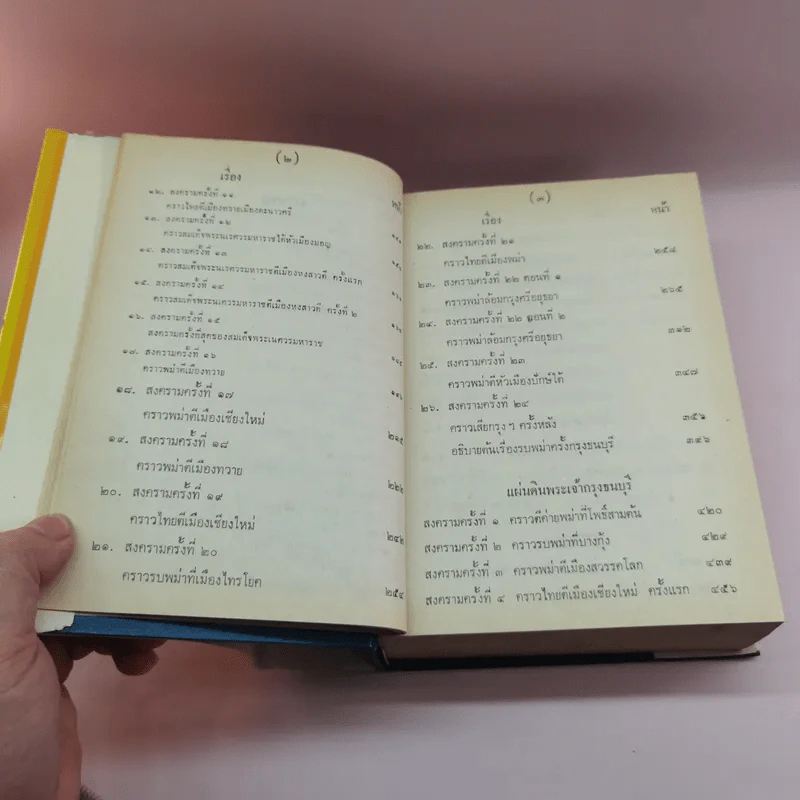 (๒)
เรื่อง
๑๒. สงครามครั้งที่ ๑๑
คราวไทยตีเมืองทวายเมืองตะนาวศรี
๑๓. สงครามครั้งที่ ๑๒
คราวสมเด็จพระนเรศวรมหาราชได้หัวเมืองมอญ
๑๔. สงครามครั้งที่ ๑๓
คราวสมเด็จพระนเรศวรมหาราชตีเมืองหงสาวดี ครั้งแรก
๑๕. สงครามครั้งที่ ๑๔
คราวสมเด็จพระนเรศวรมหาราชตีเมืองหงสาวดี ครั้งที่ ๒
๑๖. สงครามครั้งที่ ๑๕
สงครามครั้งที่สุดของสมเด็จพระนเรศวรมหาราช
๑๗. สงครามครั้งที่ ๑๖
คราวพม่าตีเมืองทวาย
๑๘. สงครามครั้งที่ ๑๗
คราวพม่าตีเมืองเชียงใหม่ ๒๑๕
๑๙. สงครามครั้งที่ ๑๘
คราวพม่าตีเมืองทวาย ๒๒๒
๒๐. สงครามครั้งที่ ๑๙
คราวไทยตีเมืองเชียงใหม่ ๒๔๒
๒๑. สงครามครั้งที่ ๒๐
คราวรบพม่าที่เมืองไทรโยค ๒๕๔
(๓)
เรื่อง หน้า
๒๒. สงครามครั้งที่ ๒๑
คราวไทยตีเมืองพม่า ๒๕๘
๒๓. สงครามครั้งที่ ๒๒ ตอนที่ ๑
คราวพม่าล้อมกรุงศรีอยุธยา ๒๖๕
๒๔. สงครามครั้งที่ ๒๒ ตอนที่ ๒
คราวพม่าล้อมกรุงศรีอยุธยา ๓๑๒
๒๕. สงครามครั้งที่ ๒๓
คราวพม่าตีหัวเมืองปักษ์ใต้ ๓๔๗
๒๖. สงครามครั้งที่ ๒๔
คราวเสียกรุง ฯ ครั้งหลัง
อธิบายต้นเรื่องรบพม่าครั้งกรุงธนบุรี ๓๙๖
แผ่นดินพระเจ้ากรุงธนบุรี
สงครามครั้งที่ ๑ คราวตีค่ายพม่าที่โพธิ์สามต้น ๔๒๐
สงครามครั้งที่ ๒ คราวรบพม่าที่บางกุ้ง ๔๒๙
สงครามครั้งที่ ๓ คราวพม่าตีเมืองสวรรคโลก ๔๓๙
สงครามครั้งที่ ๔ คราวไทยตีเมืองเชียงใหม่ ครั้งแรก ๔๕๖